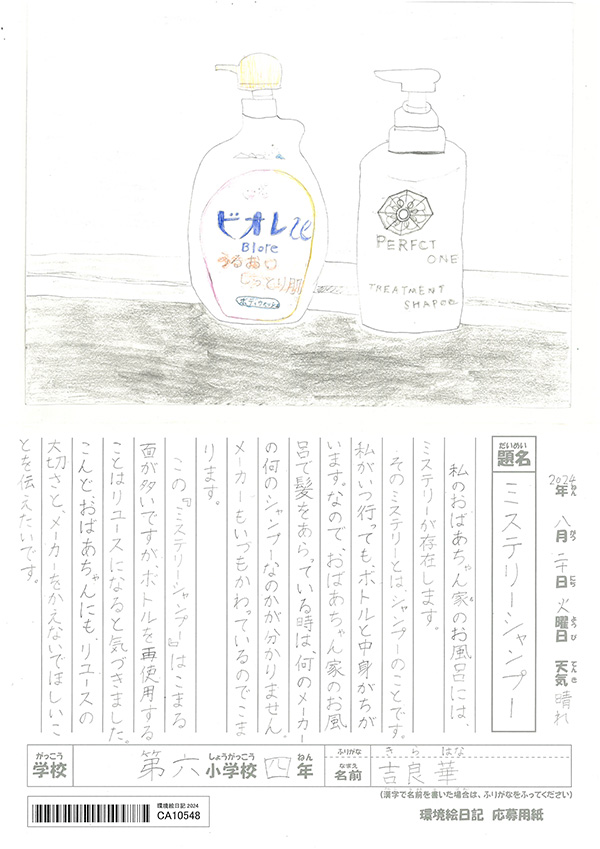 ビオレu
Biore
うるおい
しっとり肌
ボディウォッシュ
PERFCT
ONE
TREATMENT
SHAPOO
2024年 八月 二十日 火曜日 天気 晴れ
ねん がつ にち ようび てんき
だいめい
題名 ミステリーシャンプー
私のおばあちゃん家のお風呂には、
ミステリーが存在します。
そのミステリーとは、シャンプーのことです。
私がいつ行っても、ボトルと中身がちが
います。なので、おばあちゃん家のお風
呂で髪をあらっている時は、何のメーカー
の何のシャンプーなのかが分かりません。
メーカーもいつもかわっているのでこま
ります。
この『ミステリーシャンプー』はこまる
面が多いですが、ボトルを再使用する
ことはリユースになると気づきました。
こんどおばあちゃんにも、リユースの
大切さと、メーカーをかえないでほしいこ
とを伝えたいです。
がっこう しょうがっこう ねん
学校 第六小学校 四年
ふりがな きらはな
なまえ
名前 吉良華
(漢字で名前を書いた場合は、ふりがなをふってください)
環境絵日記 2024
CA10548
環境絵日記 応募用紙